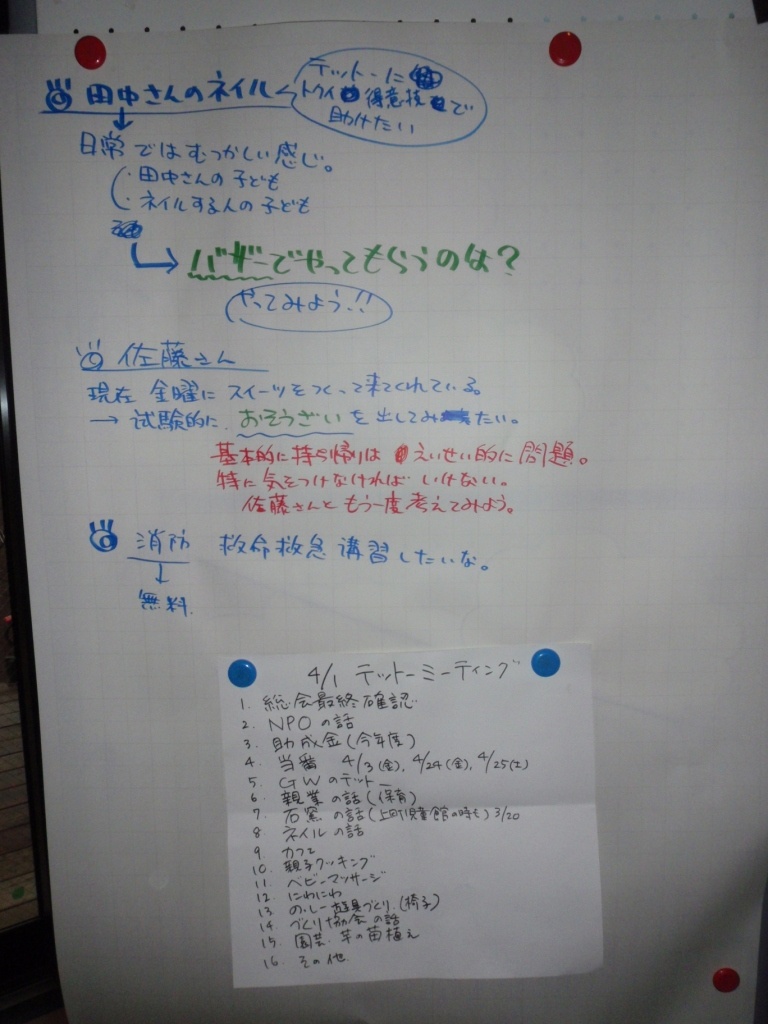 田中さんのネイル
テットーに
トクイ 得意技 で
助けたい
日常ではむつかしい感じ。
・田中さんの子ども
・ネイルする人の子ども
バザーでやってもらうのは?
やってみよう!!
佐藤さん
現在 金曜に スイーツをつくって来てくれている。
→ 試験的に おそうざい を出してみたい。
基本的に持ち帰りは えいせい的に問題。
特に気をつけなければいけない。
佐藤さんともう一度考えてみよう。
消防 救命救急 講習したいな。
↓
無料
4/1 テットーミーティング
1. 総会最終確認
2. NPOの話
3. 助成金(今年度)
4. 当番 4/3(金), 4/24(金), 4/25(土)
5. GWのテットー
6. 親業の話(保育)
7. 石窯の話(上町児童館の時も) 3/20
8. ネイルの話
9. カフェ
10. 親子クッキング
11. ベビーマッサージ
12. にわにわ
13. 遊具づくり(椅子)
14. づくり協会の話
15. 園芸. 芋の苗植え
16. その他